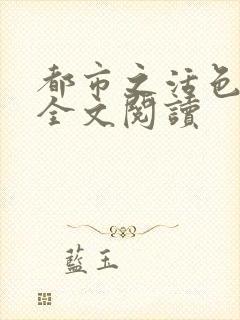 都市之活色
全文閱讀
藍玉